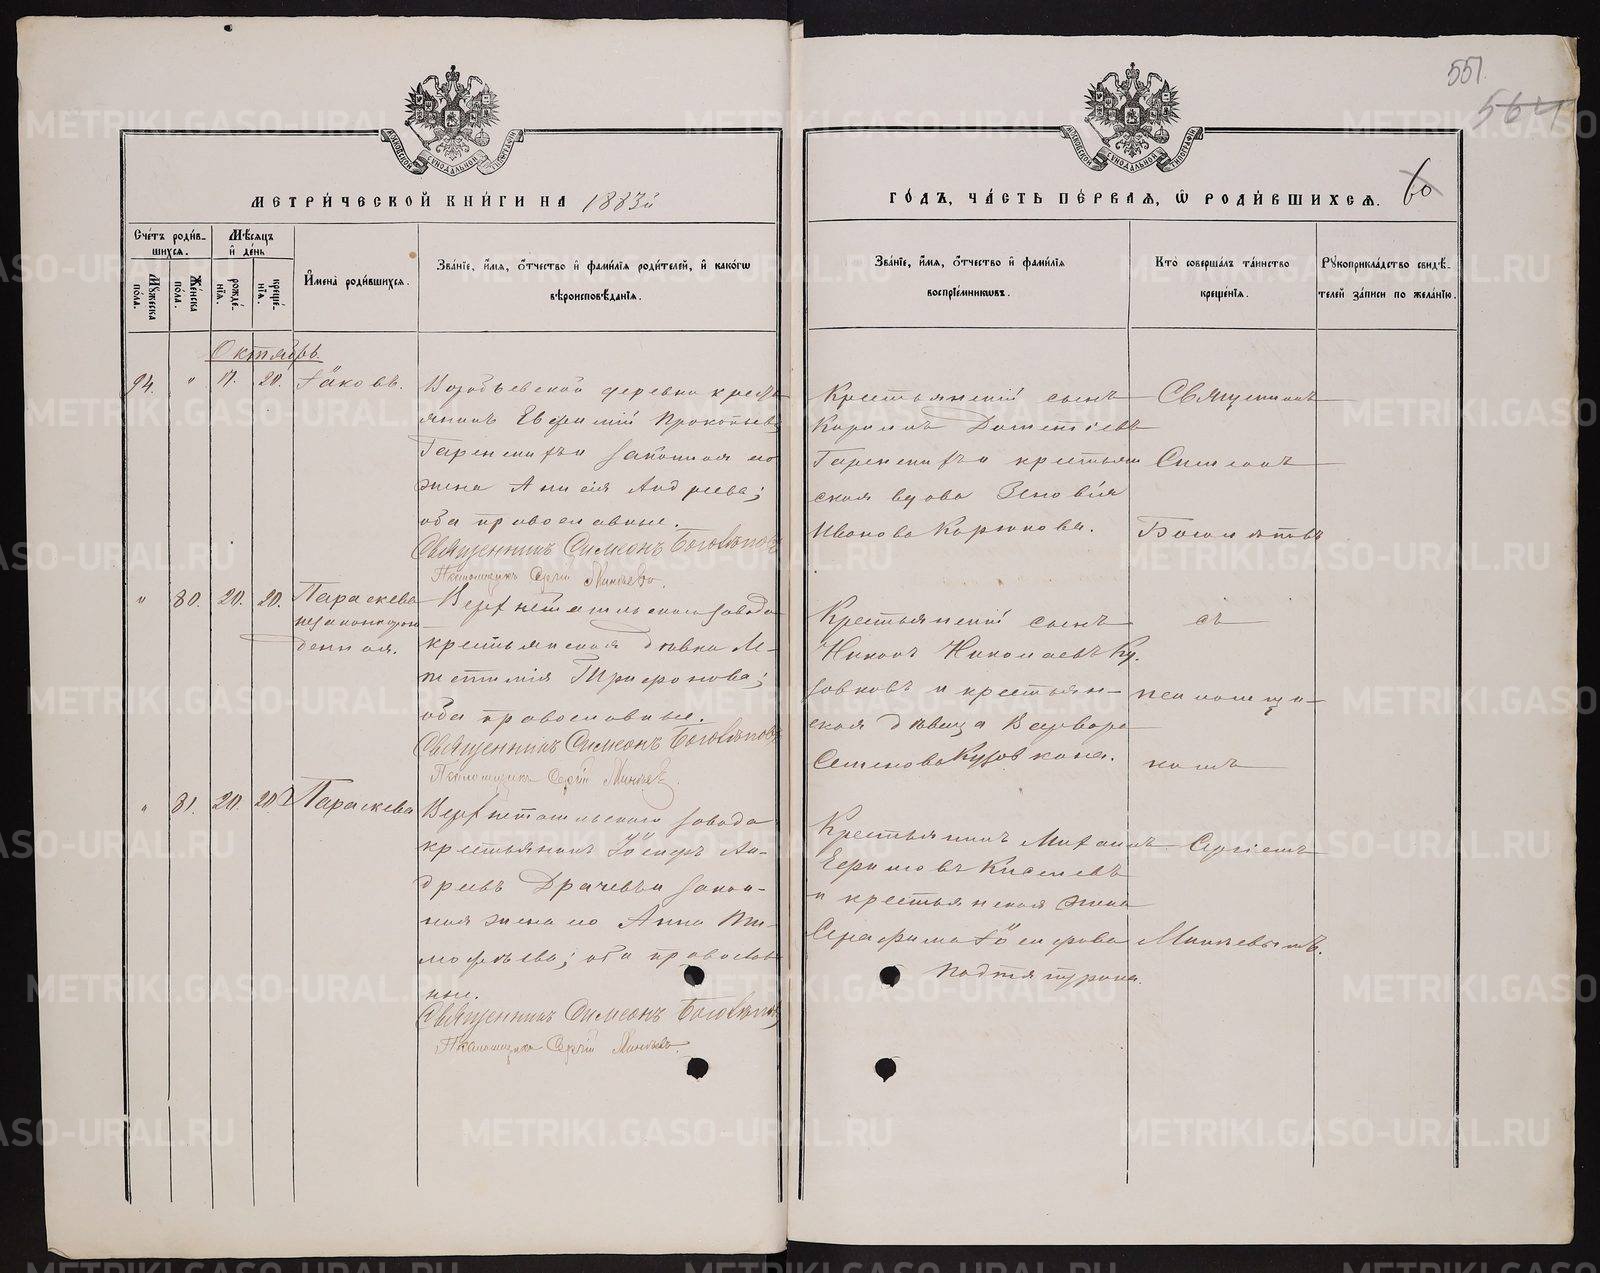 551.
564
МЕТРИЧЕСКОЙ КНИГИ НА 1883й
ГОДЪ, ЧАСТЬ ПЕРВАЯ, Ѡ РОДИВШИХСЯ.
60
Счетъ родив-
шихся.
Мѣсяцъ
и день
Мужеска
пола.
Женска
пола.
рожде-
нія.
креще-
нія.
Имена родившихся.
Званіе, имя, отчество и фамилія родителей, и какогѡ
вѣроисповѣданія.
Званіе, имя, отчество и фамилія
воспріемниковъ.
Кто совершалъ таинство
крещенія.
Рукоприкладство свидѣ-
телей записи по желанію.
Октябрь.
94. " 17. 20. Іаковъ.
деревни кресть-
янинъ Евфимій Прокопьевъ
и законная его
жена Анисія Андреева;
оба православные.
Священникъ Симеонъ Боголѣповъ
Псаломщикъ Сергій
Крестьянскій сынъ
Дометіевъ
крестьян
ская вдова Зеновія
Иванова Корюкова.
Священникъ
Симеонъ
Боголѣповъ
" 80. 20. 20. Параскева
незаконнорож
денная.
Верхнетагильскаго завода
крестьянская дѣвка М-
Трифонова;
оба православные.
Священникъ Симеонъ Боголѣповъ
Псаломщикъ Сергій
Крестьянскій сынъ
Николаевъ Ку-
зовковъ и крестьян-
ская дѣвица Варвара
Семенова Кузовкина.
съ
псаломщи-
комъ
" 81. 20. 20. Параскева
Верхнетагильскаго завода
крестьянинъ Іосифъ Ан-
дреевъ Драчевъ и закон-
ная жена его Анна Ти-
мофеева; оба православ
ные.
Священникъ Симеонъ Боголѣповъ
Псаломщикъ Сергій
Крестьянинъ Михаилъ
Ефимовъ Киселевъ
и крестьянская жена
Серафима Іосифова
Сергіемъ
METRIKI.GASO-URAL.RU